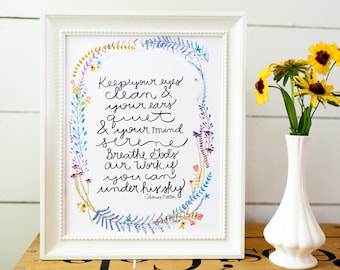 Keep your eyes
clean &
your ears
quiet
& your mind
serene
Breathe God's
air Work if
you can
under his sky
-Thomas Merton